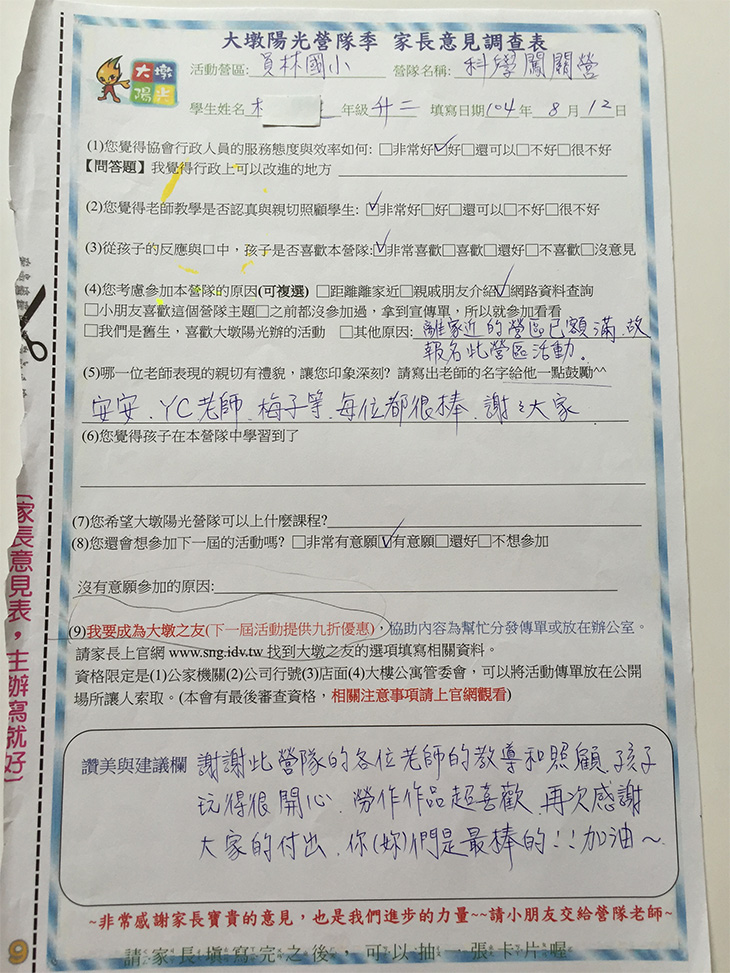 大墩陽光營隊季 家長意見調查表
大墩
陽光
活動營區:員林國小 營隊名稱:科學闖關營
學生姓名 年級升二 填寫日期104年8月12日
(1)您覺得協會行政人員的服務態度與效率如何:□非常好☑好□還可以□不好□很不好
【問答題】我覺得行政上可以改進的地方
(2)您覺得老師教學是否認真與親切照顧學生:☑非常好□好□還可以□不好□很不好
(3)從孩子的反應與口中,孩子是否喜歡本營隊:☑非常喜歡□喜歡□還好□不喜歡□沒意見
(4)您考慮參加本營隊的原因(可複選)□距離離家近□親戚朋友介紹☑網路資料查詢
□小朋友喜歡這個營隊主題□之前都沒參加過,拿到宣傳單,所以就參加看看
□我們是舊生,喜歡大墩陽光辦的活動 □其他原因:離家近的營區已額滿、故
報名此營區活動。
(5)哪一位老師表現的親切有禮貌,讓您印象深刻?請寫出老師的名字給他一點鼓勵^^
安安、YC老師、梅子等、每位都很棒、謝々大家
(6)您覺得孩子在本營隊中學習到了
(7)您希望大墩陽光營隊可以上什麼課程?
(8)您還會想參加下一屆的活動嗎?□非常有意願☑有意願□還好□不想參加
沒有意願參加的原因:
(9)我要成為大墩之友(下一屆活動提供九折優惠),協助內容為幫忙分發傳單或放在辦公室。
請家長上官網 www.sng.idv.tw 找到大墩之友的選項填寫相關資料。
資格限定是(1)公家機關(2)公司行號(3)店面(4)大樓公寓管委會,可以將活動傳單放在公開
場所讓人索取。(本會有最後審查資格,相關注意事項請上官網觀看)
讚美與建議欄 謝謝此營隊的各位老師的教導和照顧、孩子
玩得很開心、勞作作品超喜歡、再次感謝
大家的付出、你(妳)們是最棒的!!加油~
~非常感謝家長寶貴的意見,也是我們進步的力量~~請小朋友交給營隊老師~
請家長填寫完之後,可以抽一張卡片喔
(家長意見表,主辦寫就好)
9